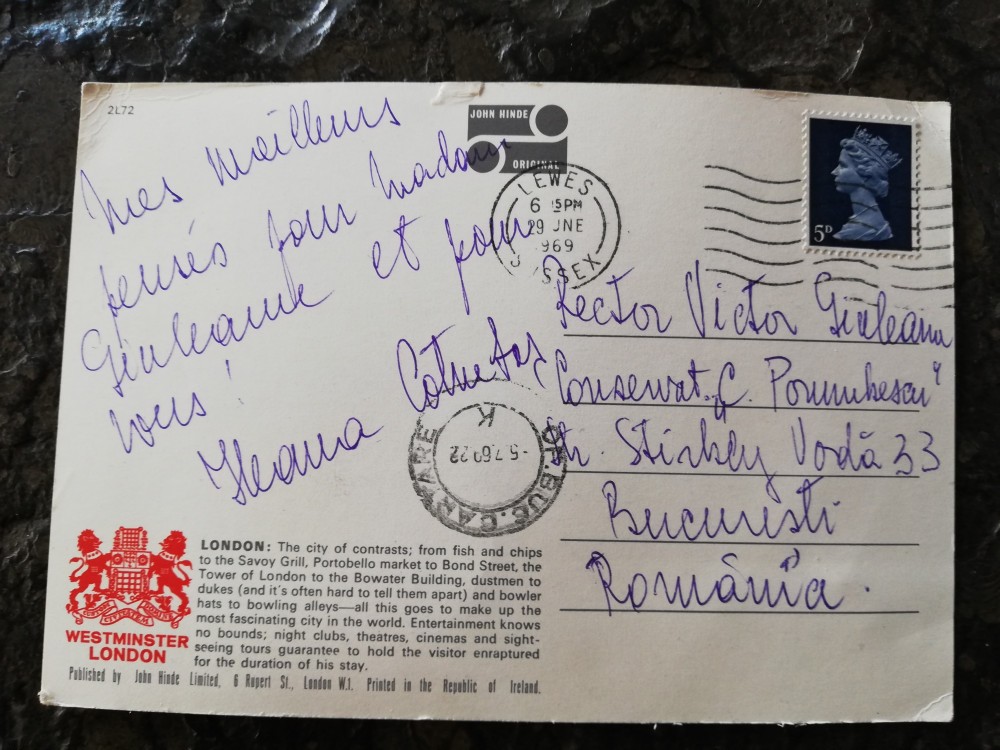 2L72
JOHN HINDE
ORIGINAL
Mes meilleurs
pensés pour Madam
Giuleanu et pour
vous!
Ileana
LEWES
6 15PM
29 JNE
969
SSEX
5D
Rector Victor Giuleanu
Conservat. „C. Porumbescu"
Str. Stirbey Vodă 33
Bucuresti
România.
OF.BUC.CARTARE
-5.7.69.22
K
LONDON: The city of contrasts; from fish and chips
to the Savoy Grill, Portobello market to Bond Street, the
Tower of London to the Bowater Building, dustmen to
dukes (and it's often hard to tell them apart) and bowler
hats to bowling alleys—all this goes to make up the
most fascinating city in the world. Entertainment knows
no bounds; night clubs, theatres, cinemas and sight-
seeing tours guarantee to hold the visitor enraptured
for the duration of his stay.
WESTMINSTER
LONDON
Published by John Hinde Limited, 6 Rupert St., London W.I. Printed in the Republic of Ireland.